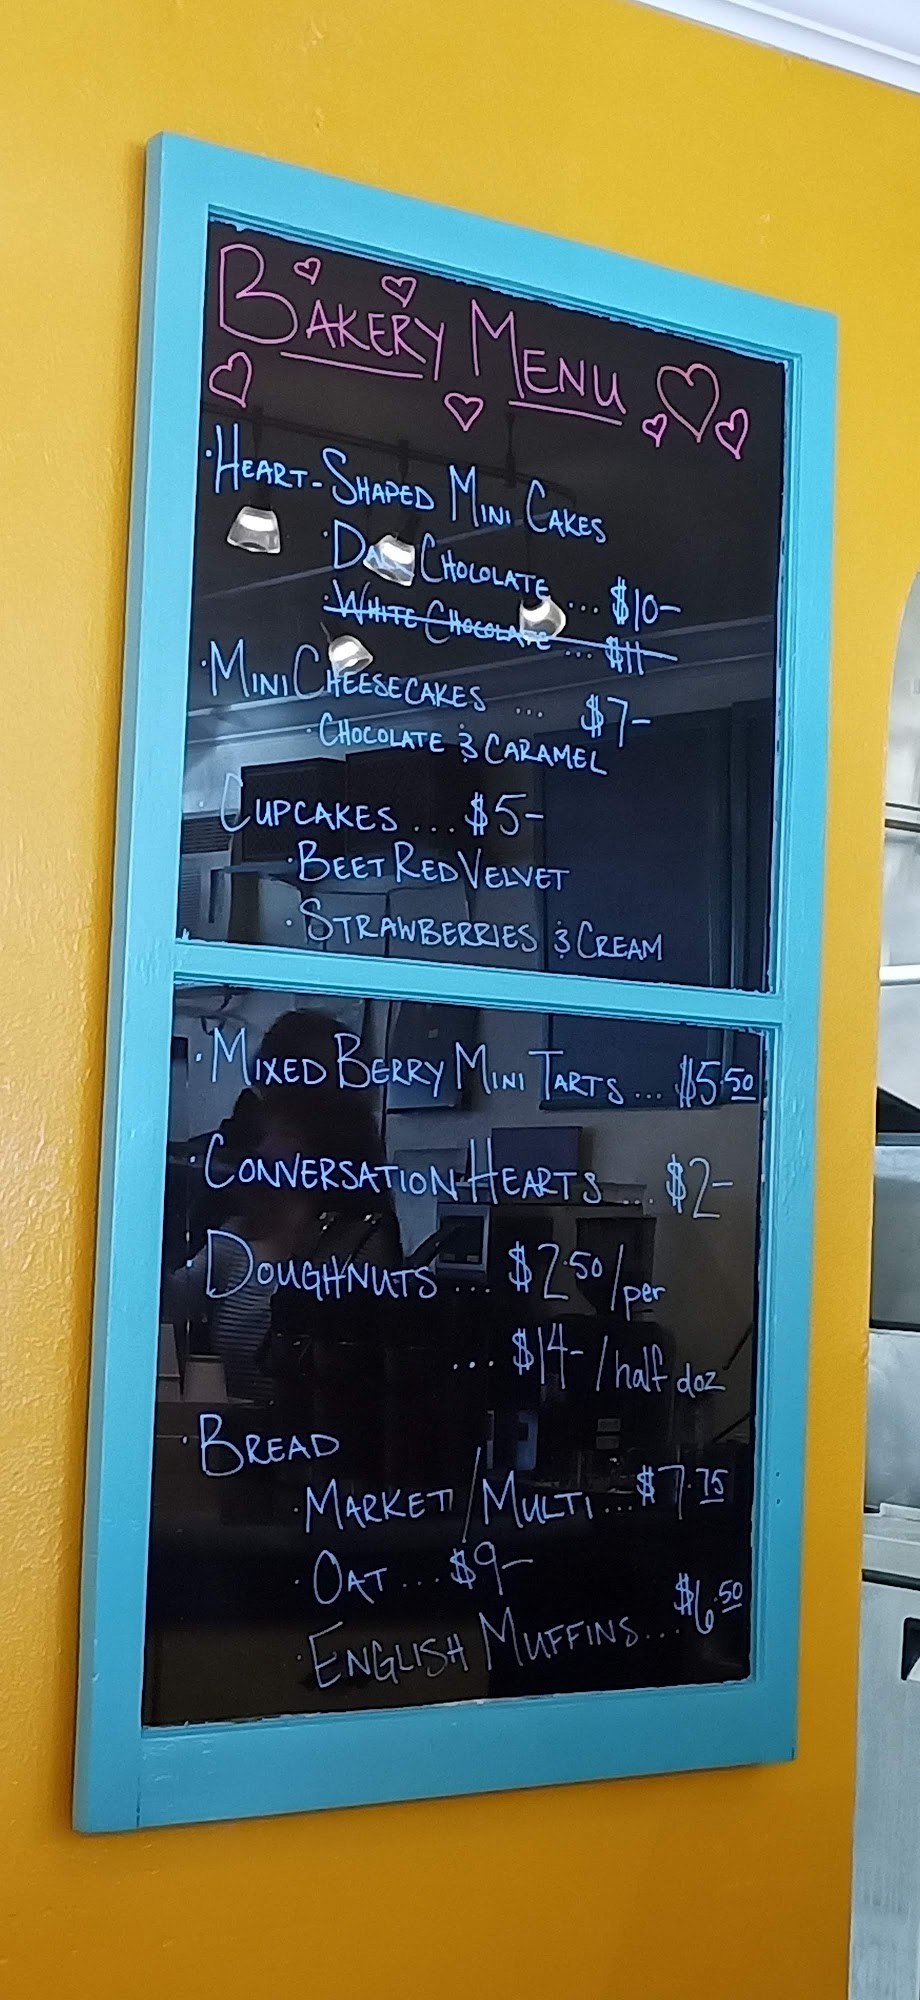 BAKERY MENU
· HEART-SHAPED MINI CAKES
· DARK CHOLOLATE ... $10-
· WHITE CHOCOLATE ... $11
· MINI CHEESECAKES ... $7-
· CHOCOLATE & CARAMEL
CUPCAKES ... $5-
· BEET RED VELVET
· STRAWBERRIES & CREAM
· MIXED BERRY MINI TARTS ... $5.50
· CONVERSATION HEARTS ... $2-
· DOUGHNUTS ... $2.50/per
... $14-/half doz
· BREAD
· MARKET/MULTI ... $7.75
· OAT ... $9-
· ENGLISH MUFFINS ... $6.50